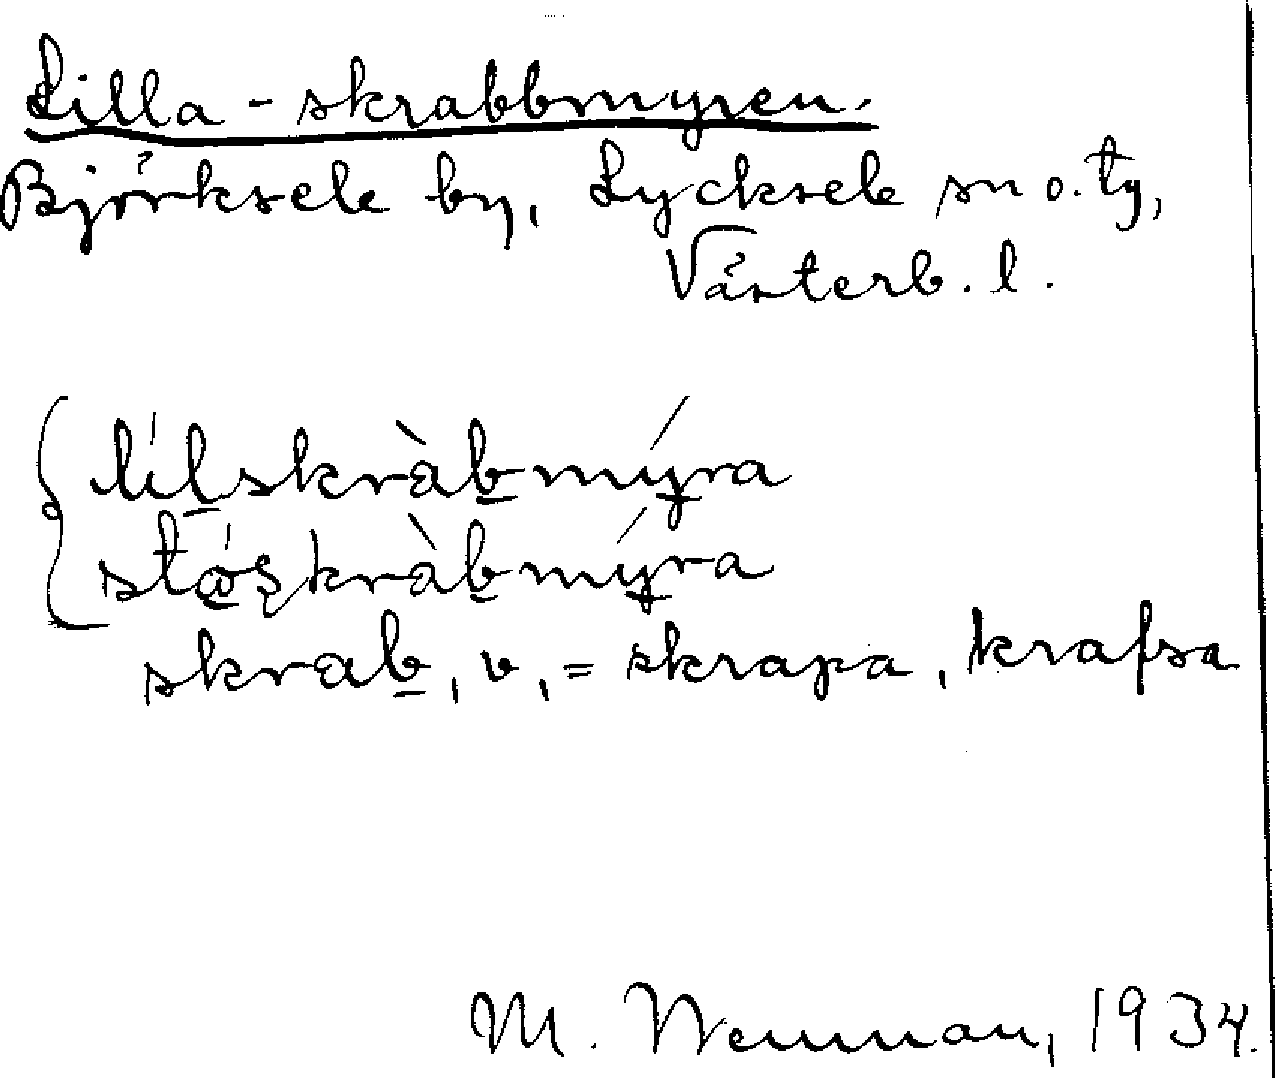 Lilla-skrabbmyren.
Björksele by, Lycksele sn o. tg,
Västerb. l.
lílskràbmýra
skràbmýra
skrab, v, = skrapa, krafsa
M. Wennman, 1934.